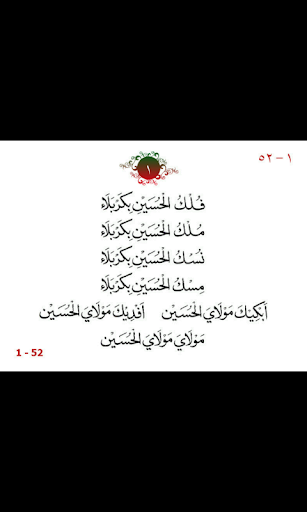 ١ - ٥٢
١
فُلْكُ الْحُسَيْنِ بِكَرْبَلَاءِ
مُلْكُ الْحُسَيْنِ بِكَرْبَلَاءِ
نُسُكُ الْحُسَيْنِ بِكَرْبَلَاءِ
مِسْكُ الْحُسَيْنِ بِكَرْبَلَاءِ
اَبْكِيْكَ مَوْلَايَ الْحُسَيْن اَفْدِيْكَ مَوْلَايَ الْحُسَيْن
مَوْلَايَ مَوْلَايَ الْحُسَيْن
1 - 52